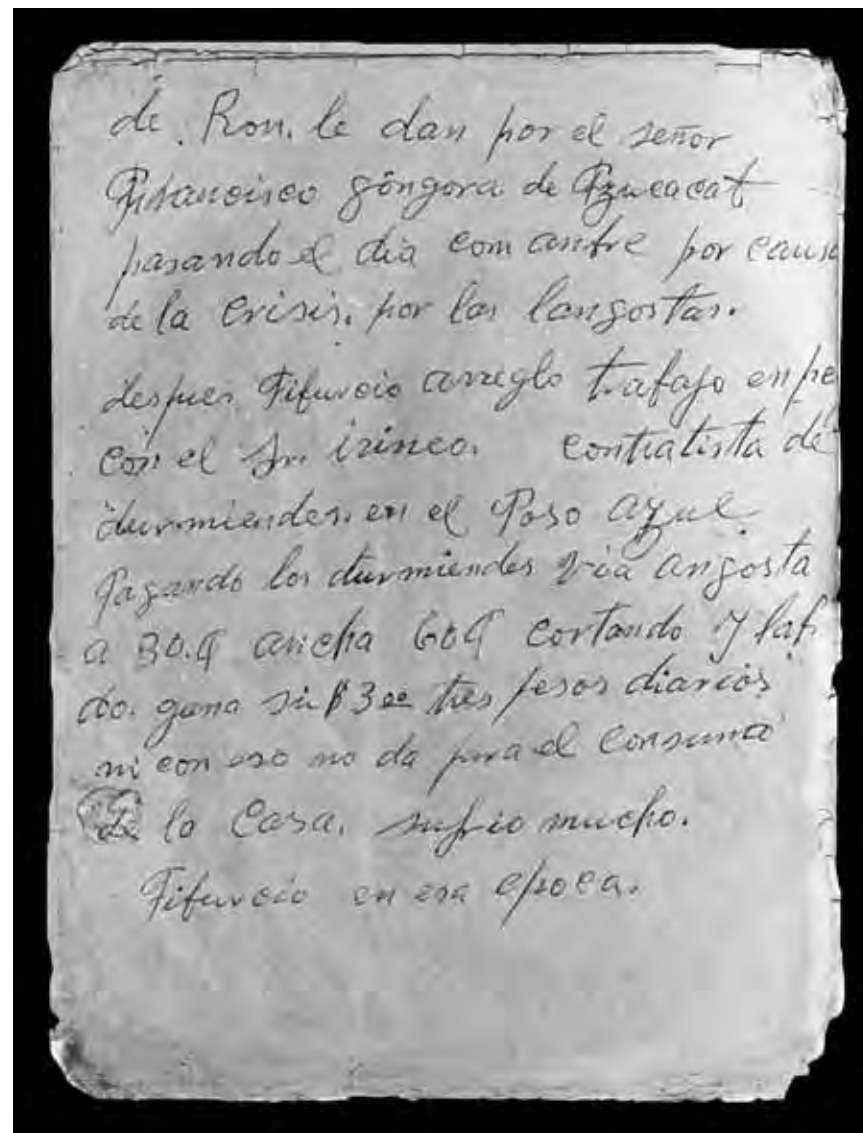 de. Ron. le dan por el señor
Francisco góngora de
pasando el dia com anbre por causa
de la Crisis. por las langostas.
despues. Tifurcio arreglo trabajo en pe
con el Sr. irineo. contratista de
durmiendes. en el Poso azul
Pagando los durmiendes via angosta
a 30.¢ ancha 60¢ cortando y lab
do. gana su $3.00 tres pesos diarios
ni con eso no da para el Consumo
de la Casa. sufrio mucho.
Tifurcio en esa epoca.